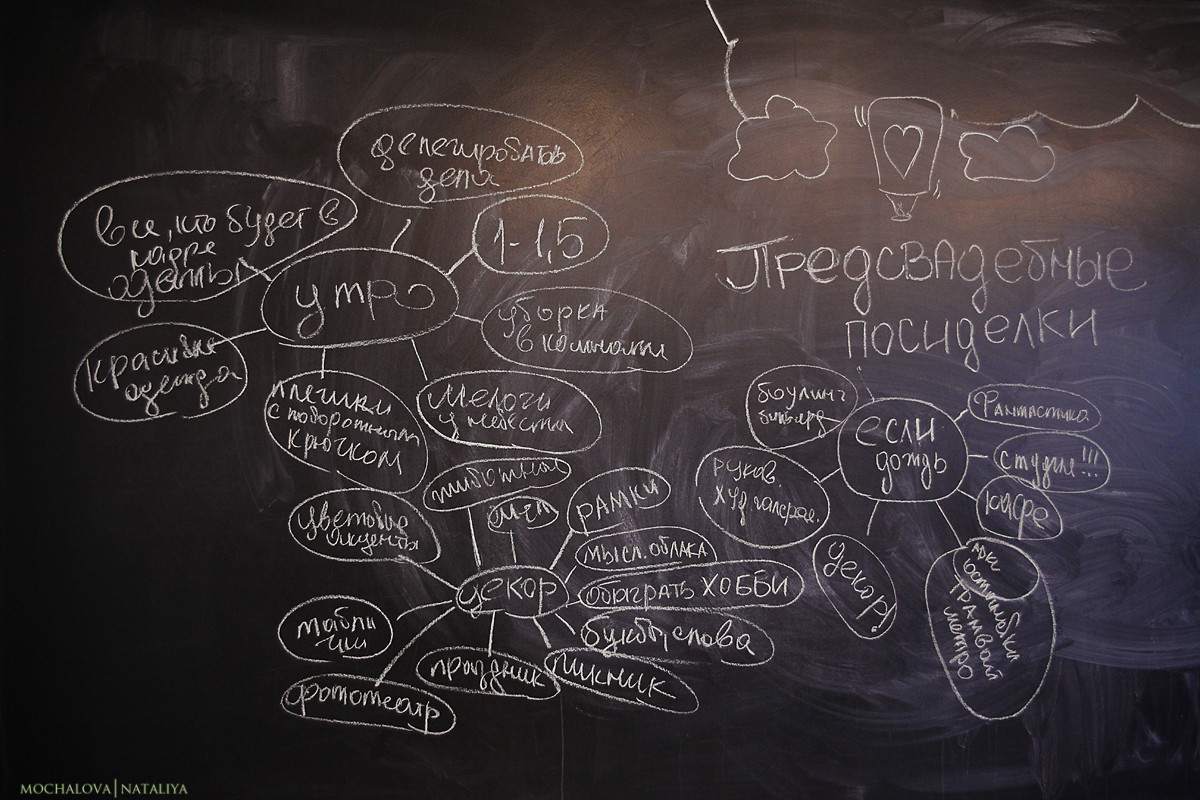 делегировать
дела
все, кто будет в
кадре
одеты
1-1,5
утро
уборка
в комнати
красивая
одежда
плечики
с поворотным
крючком
мелочи
у невесты
Предсвадебные
посиделки
боулинг
бильярд
если
дождь
Фантастика
студия!!!
кафе
худ галерея.
декор!
остановки
трамвай
метро
животные
рамки
цветовые
акценты
мысл. облака
декор
обыграть хобби
буквы, слова
таблич
ки
праздник
пикник
фототеатр
MOCHALOVA|NATALIYA